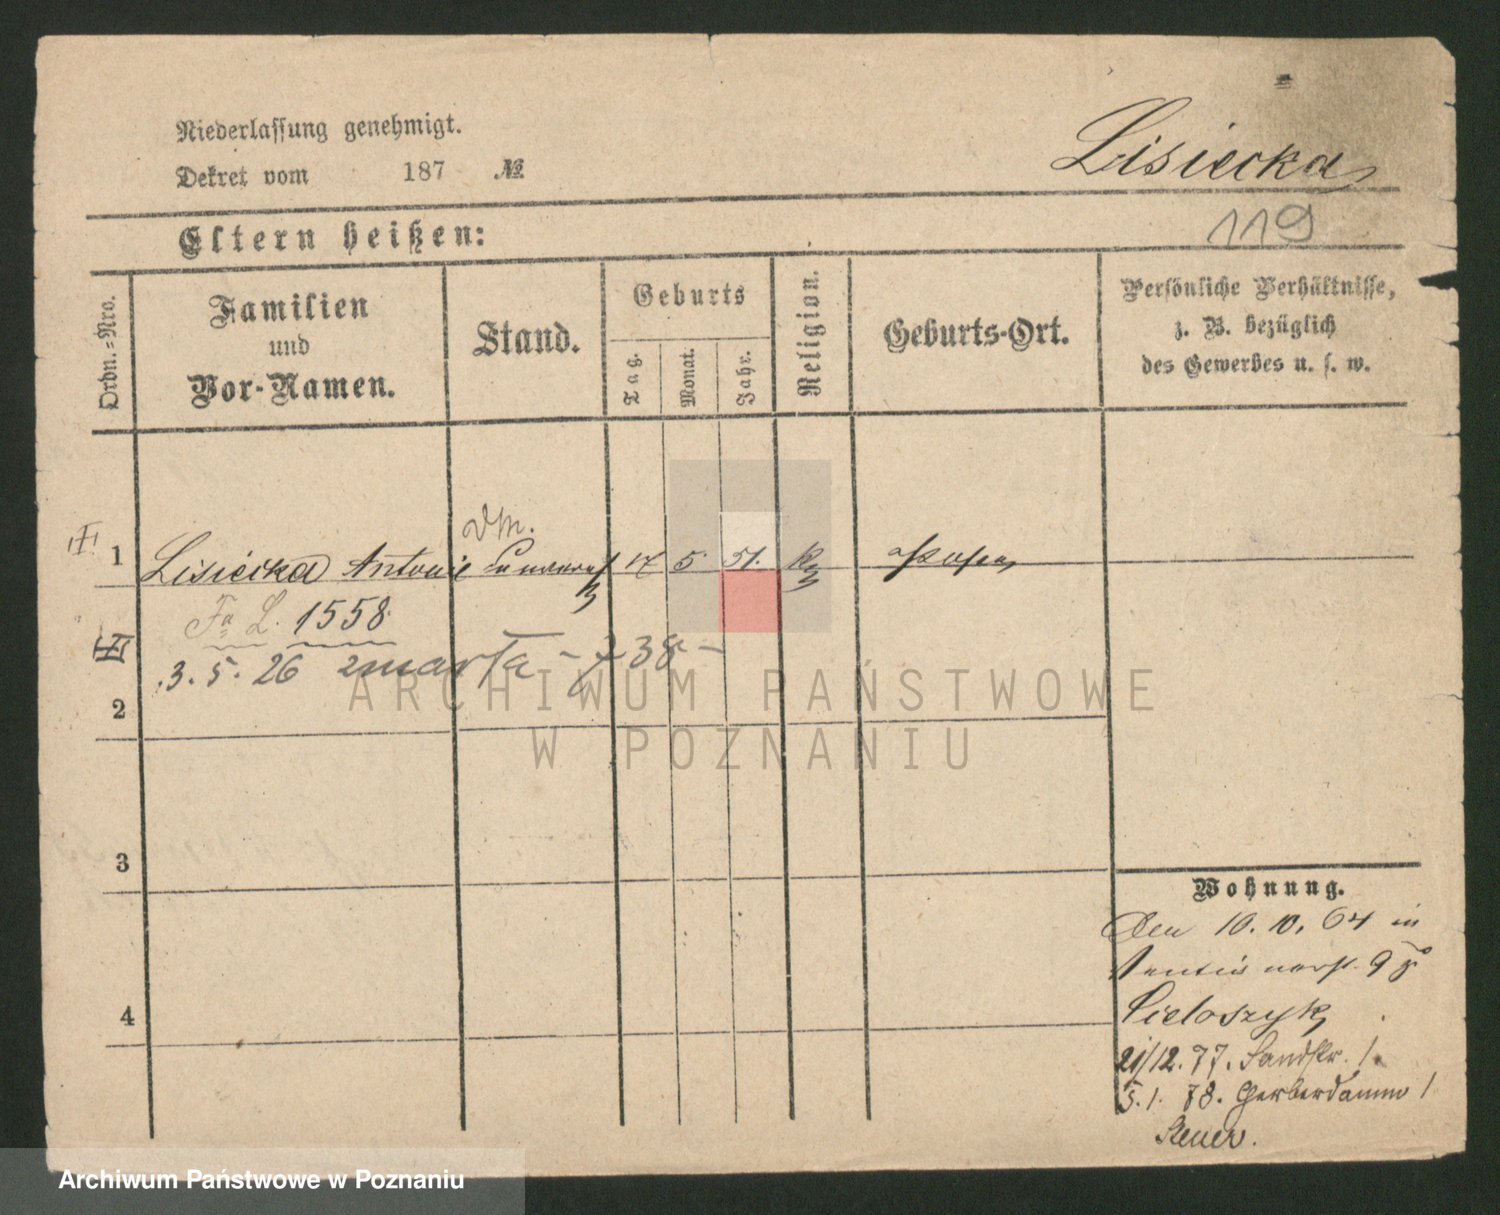 Niederlassung genehmigt.
Dekret vom 187 №
Lisiecka
119
Eltern heißen:
Ordn.-Nro.
Familien
und
Vor-Namen.
Stand.
Geburts
Tag.
Monat.
Jahr.
Religion.
Geburts-Ort.
Persönliche Verhältnisse,
z. B. bezüglich
des Gewerbes u. s. w.
1 Lisiecka Antonie 17 5 51. K Posen
L. 1558
3. 5. 26 zmarła - 38 -
2
3
4
Wohnung.
Den 10. 10. 64 in
9
Cieloszyk
21/12. 77. Sandstr. 1.
5. 1. 78. Gerberdamm 1
ARCHIWUM PAŃSTWOWE
W POZNANIU
Archiwum Państwowe w Poznaniu